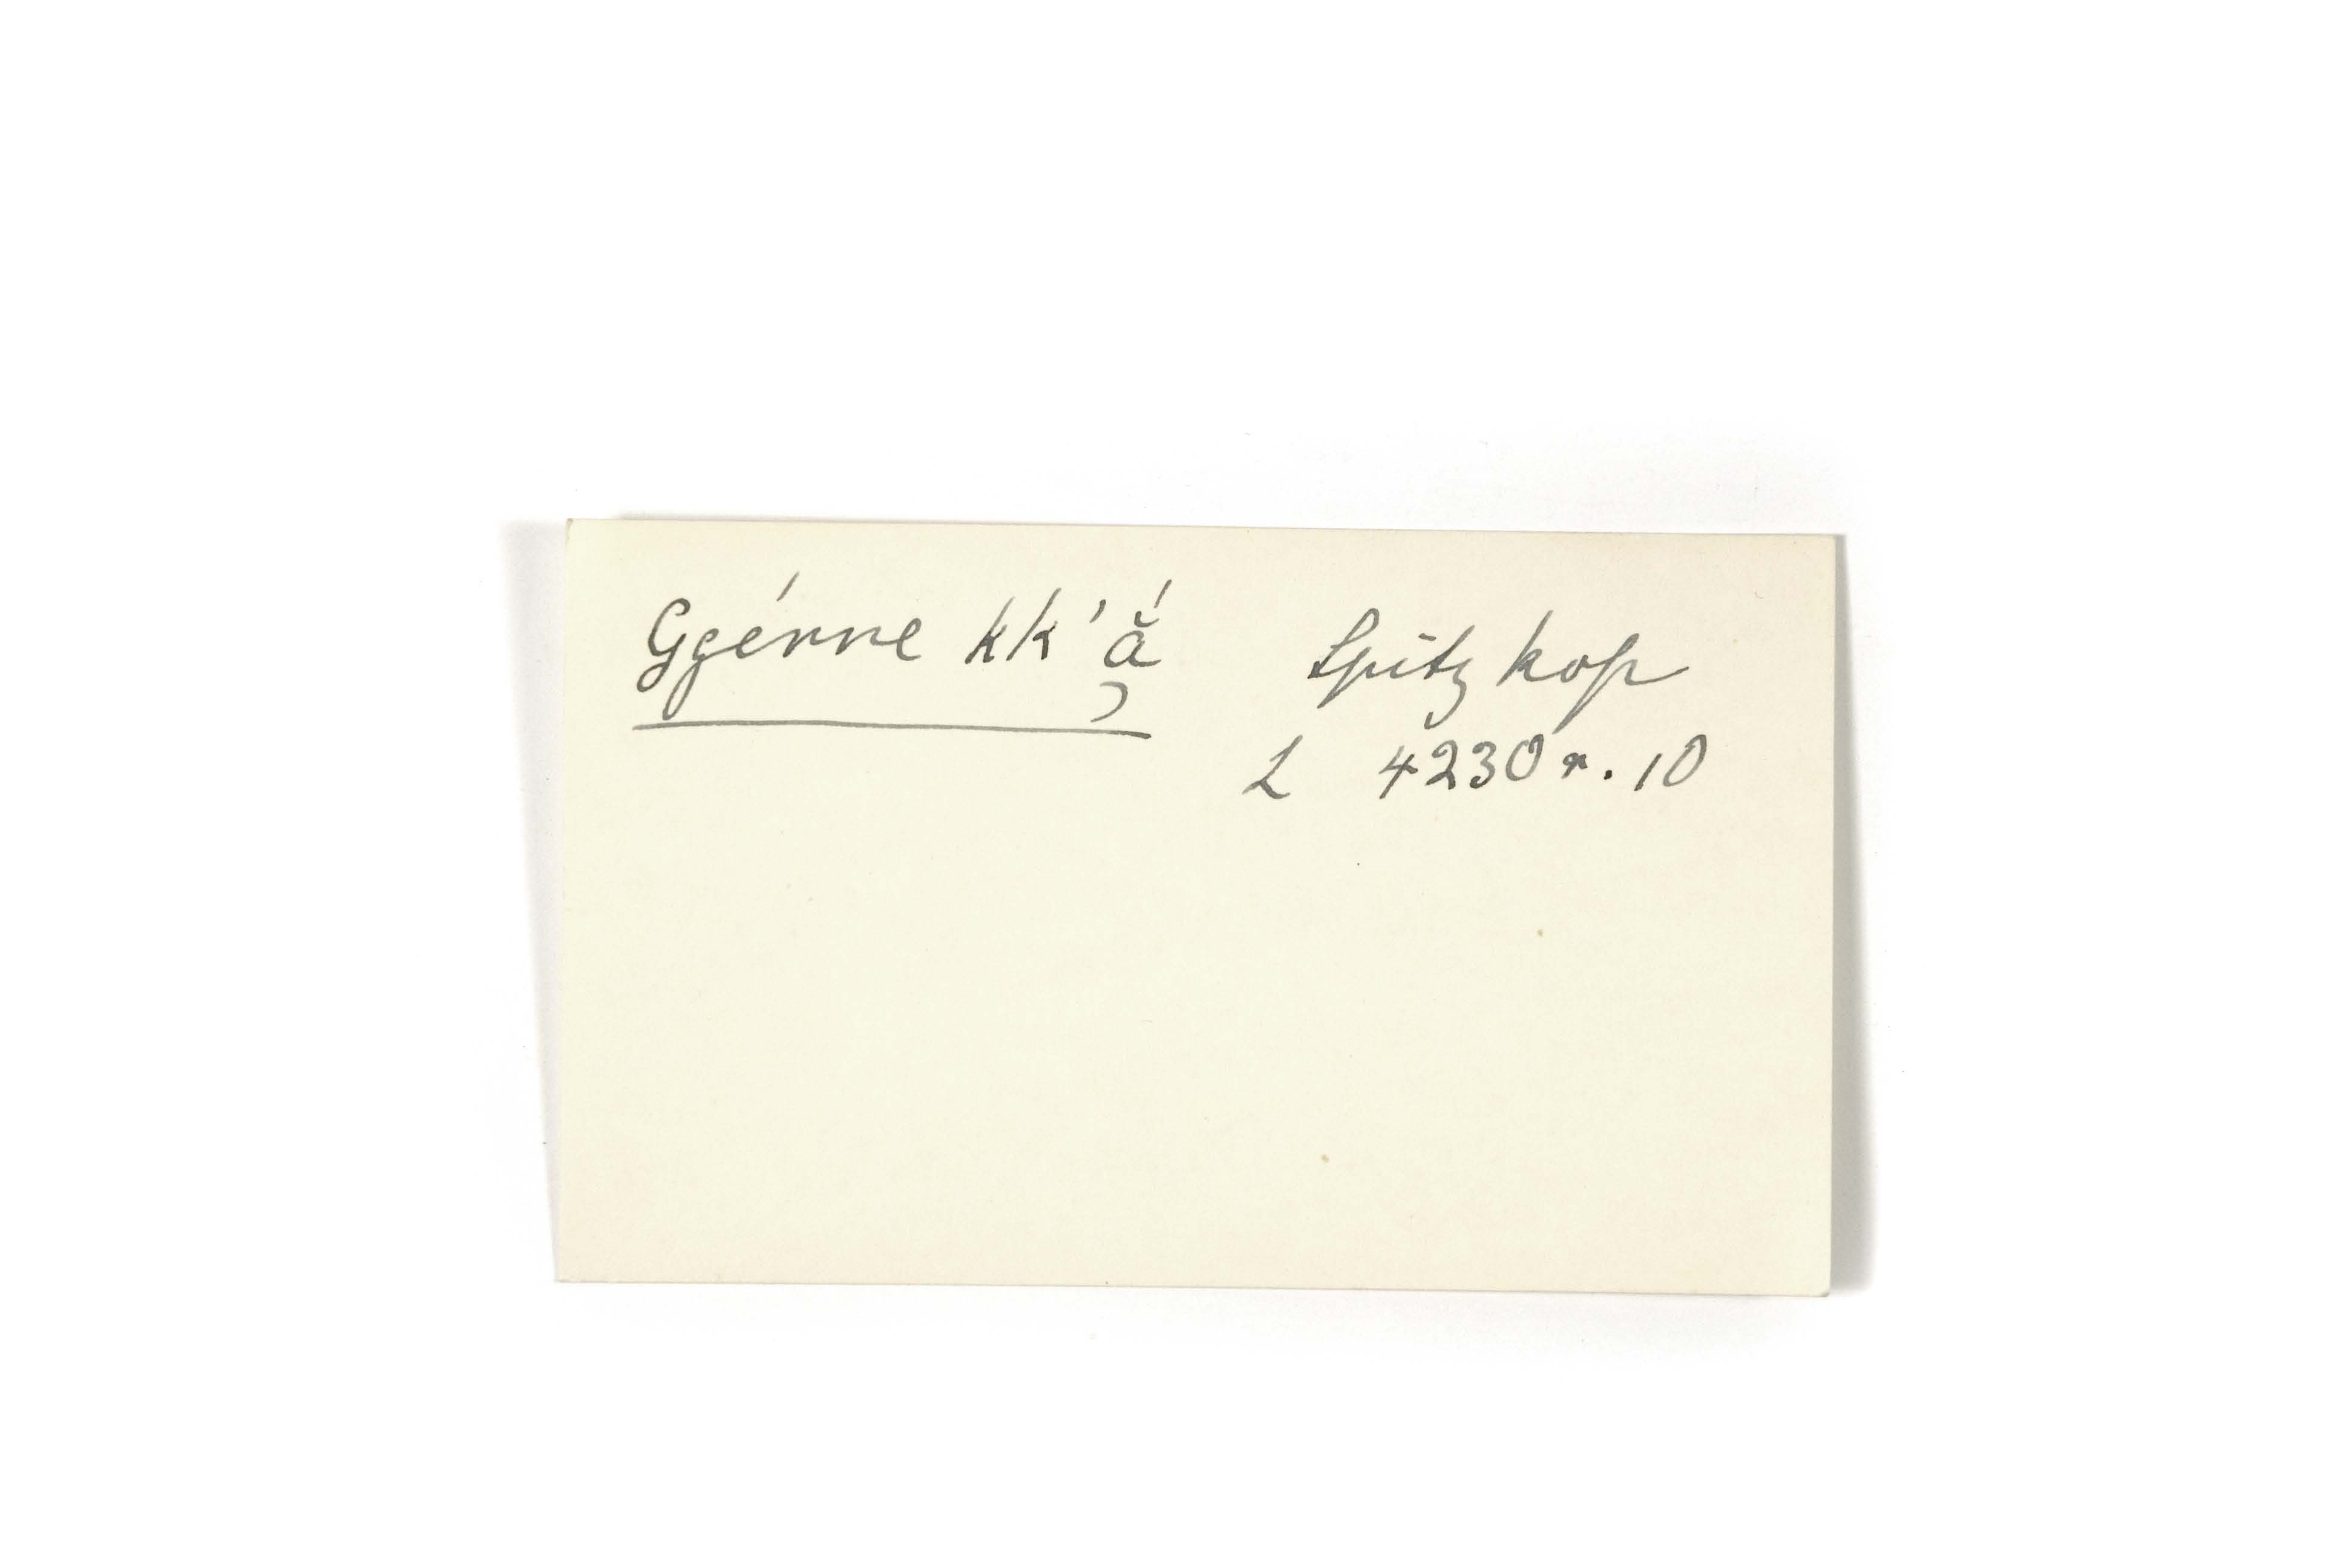 Ggénne kk'ắ̦ Spitzkop
L 4230 r. 10